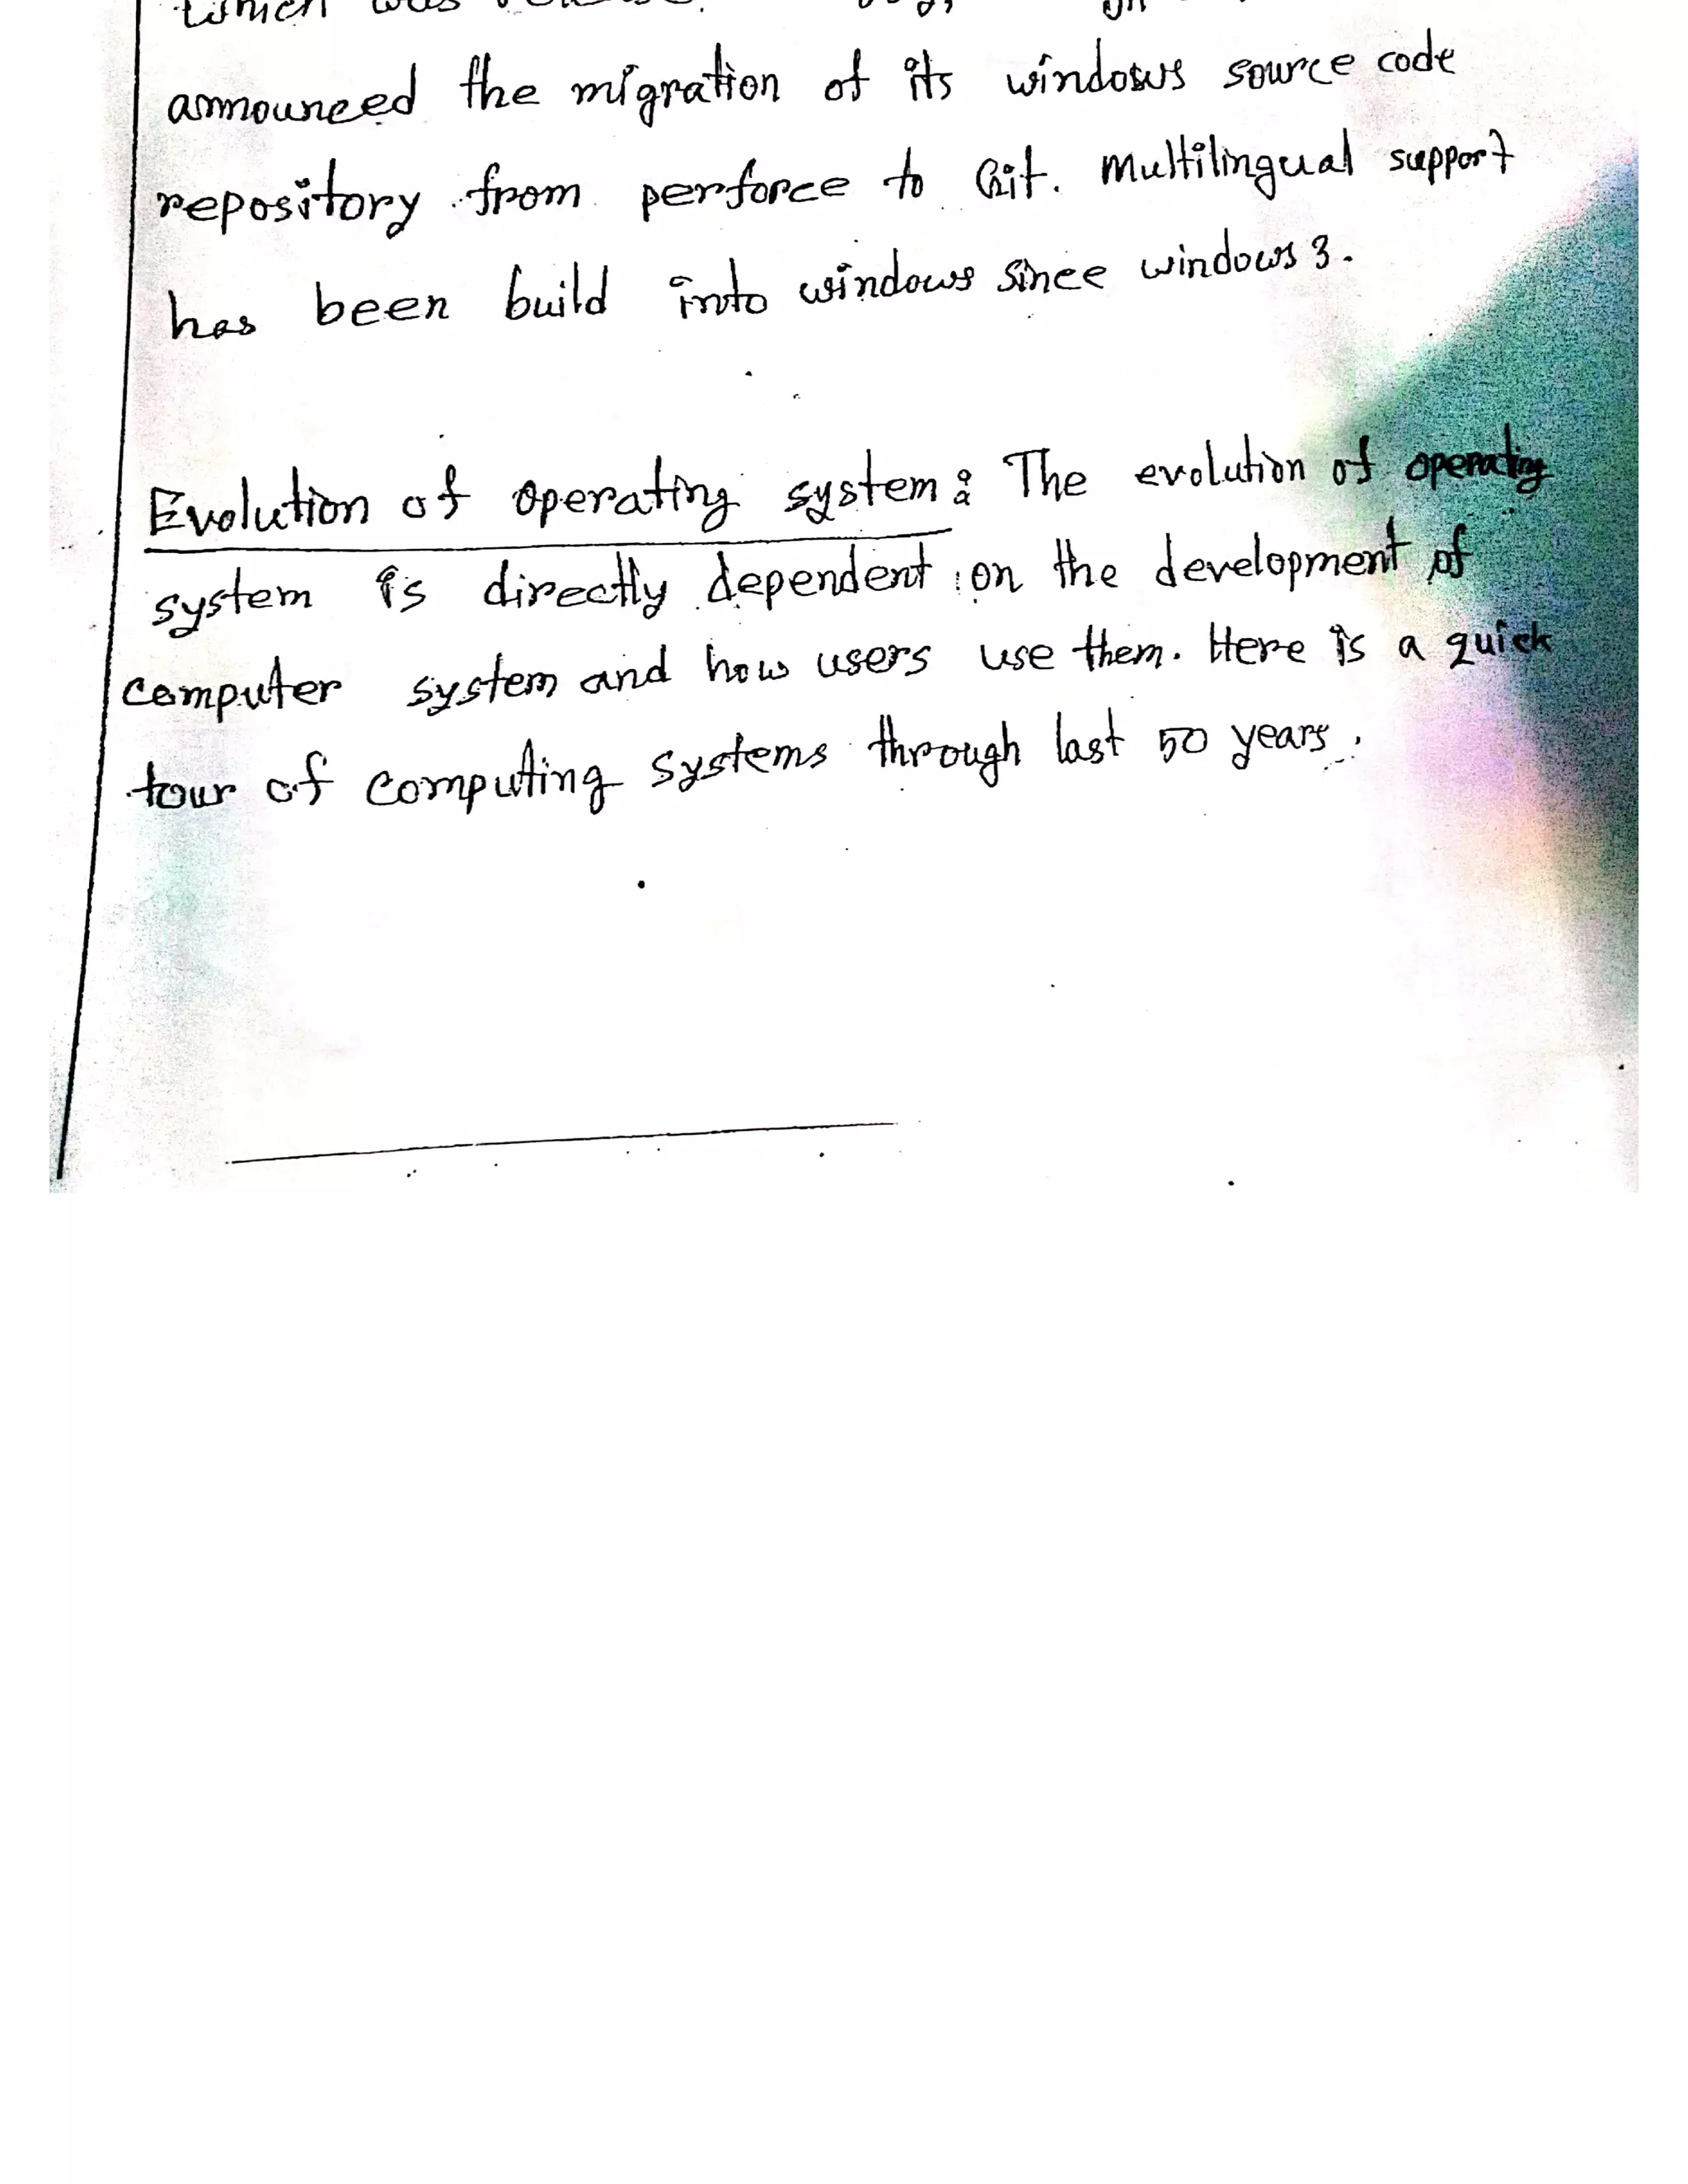 which was
announced the migration of its windows source code
repository from perforce to Git. Multilingual support
has been build into windows since windows 3.
Evolution of operating system: The evolution of operating
system is directly dependent on the development of
computer system and how users use them. Here is a quick
tour of computing systems through last 50 years.